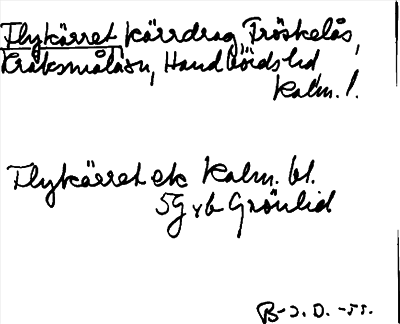 Flykärret, kärrdrag, Fröskelås,
Kråksmålasn, Handbördshd
Kalm. l.
Flykärret ek Kalm. bl.
5G vb Grönlid
B-J.O. -55.